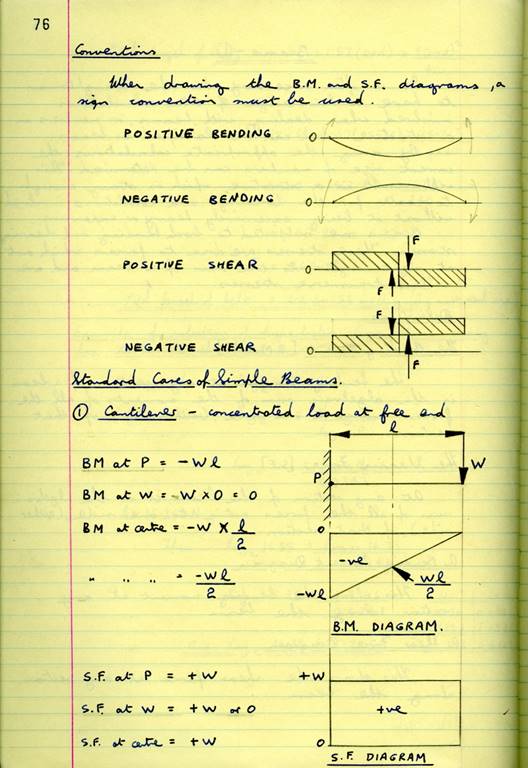 76
Conventions
When drawing the B.M. and S.F. diagrams, a
sign convention must be used.
POSITIVE BENDING 0
NEGATIVE BENDING 0
F
POSITIVE SHEAR 0
F
F
NEGATIVE SHEAR 0
F
Standard Cases of Simple Beams.
① Cantilever - concentrated load at free end
l
BM at P = -Wl
P W
BM at W = -W x 0 = 0
BM at centre = -W x l/2
0
-ve
" " " = -Wl/2
Wl/2
-Wl
B.M. DIAGRAM.
S.F. at P = +W
+W
S.F. at W = +W or 0
+ve
S.F. at centre = +W
0
S.F. DIAGRAM